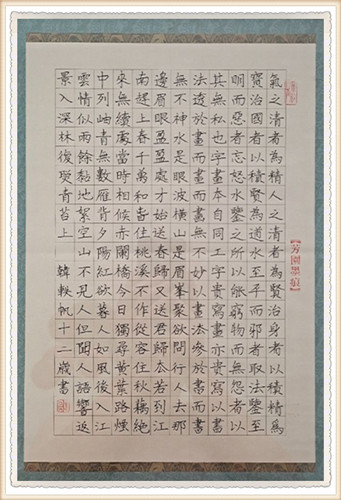 氣之清者為精人之清者為賢治身者以積精為
寶治國者以積賢為道水至平而邪者取法鑒至
明而惡者忘怒水鑒之所以能窮物而無怨者以
其無私也字畫本自同工字貴寫畫亦貴寫以書
法透於畫而畫無不妙以畫法參於書而書
無不神水是眼波橫山是眉峯聚欲問行人去那
邊眉眼盈盈處才始送春歸又送君歸去若到江
南趕上春千萬和春住桃溪不作從容住秋藕絕
來無續處當時相候赤闌橋今日獨尋黃葉路煙
中列岫青無數雁背夕陽紅欲暮人如風後入江
雲情似雨餘黏地絮空山不見人但聞人語響返
景入深林復照青苔上 韓軼帆十二歲書
【芳園墨痕】